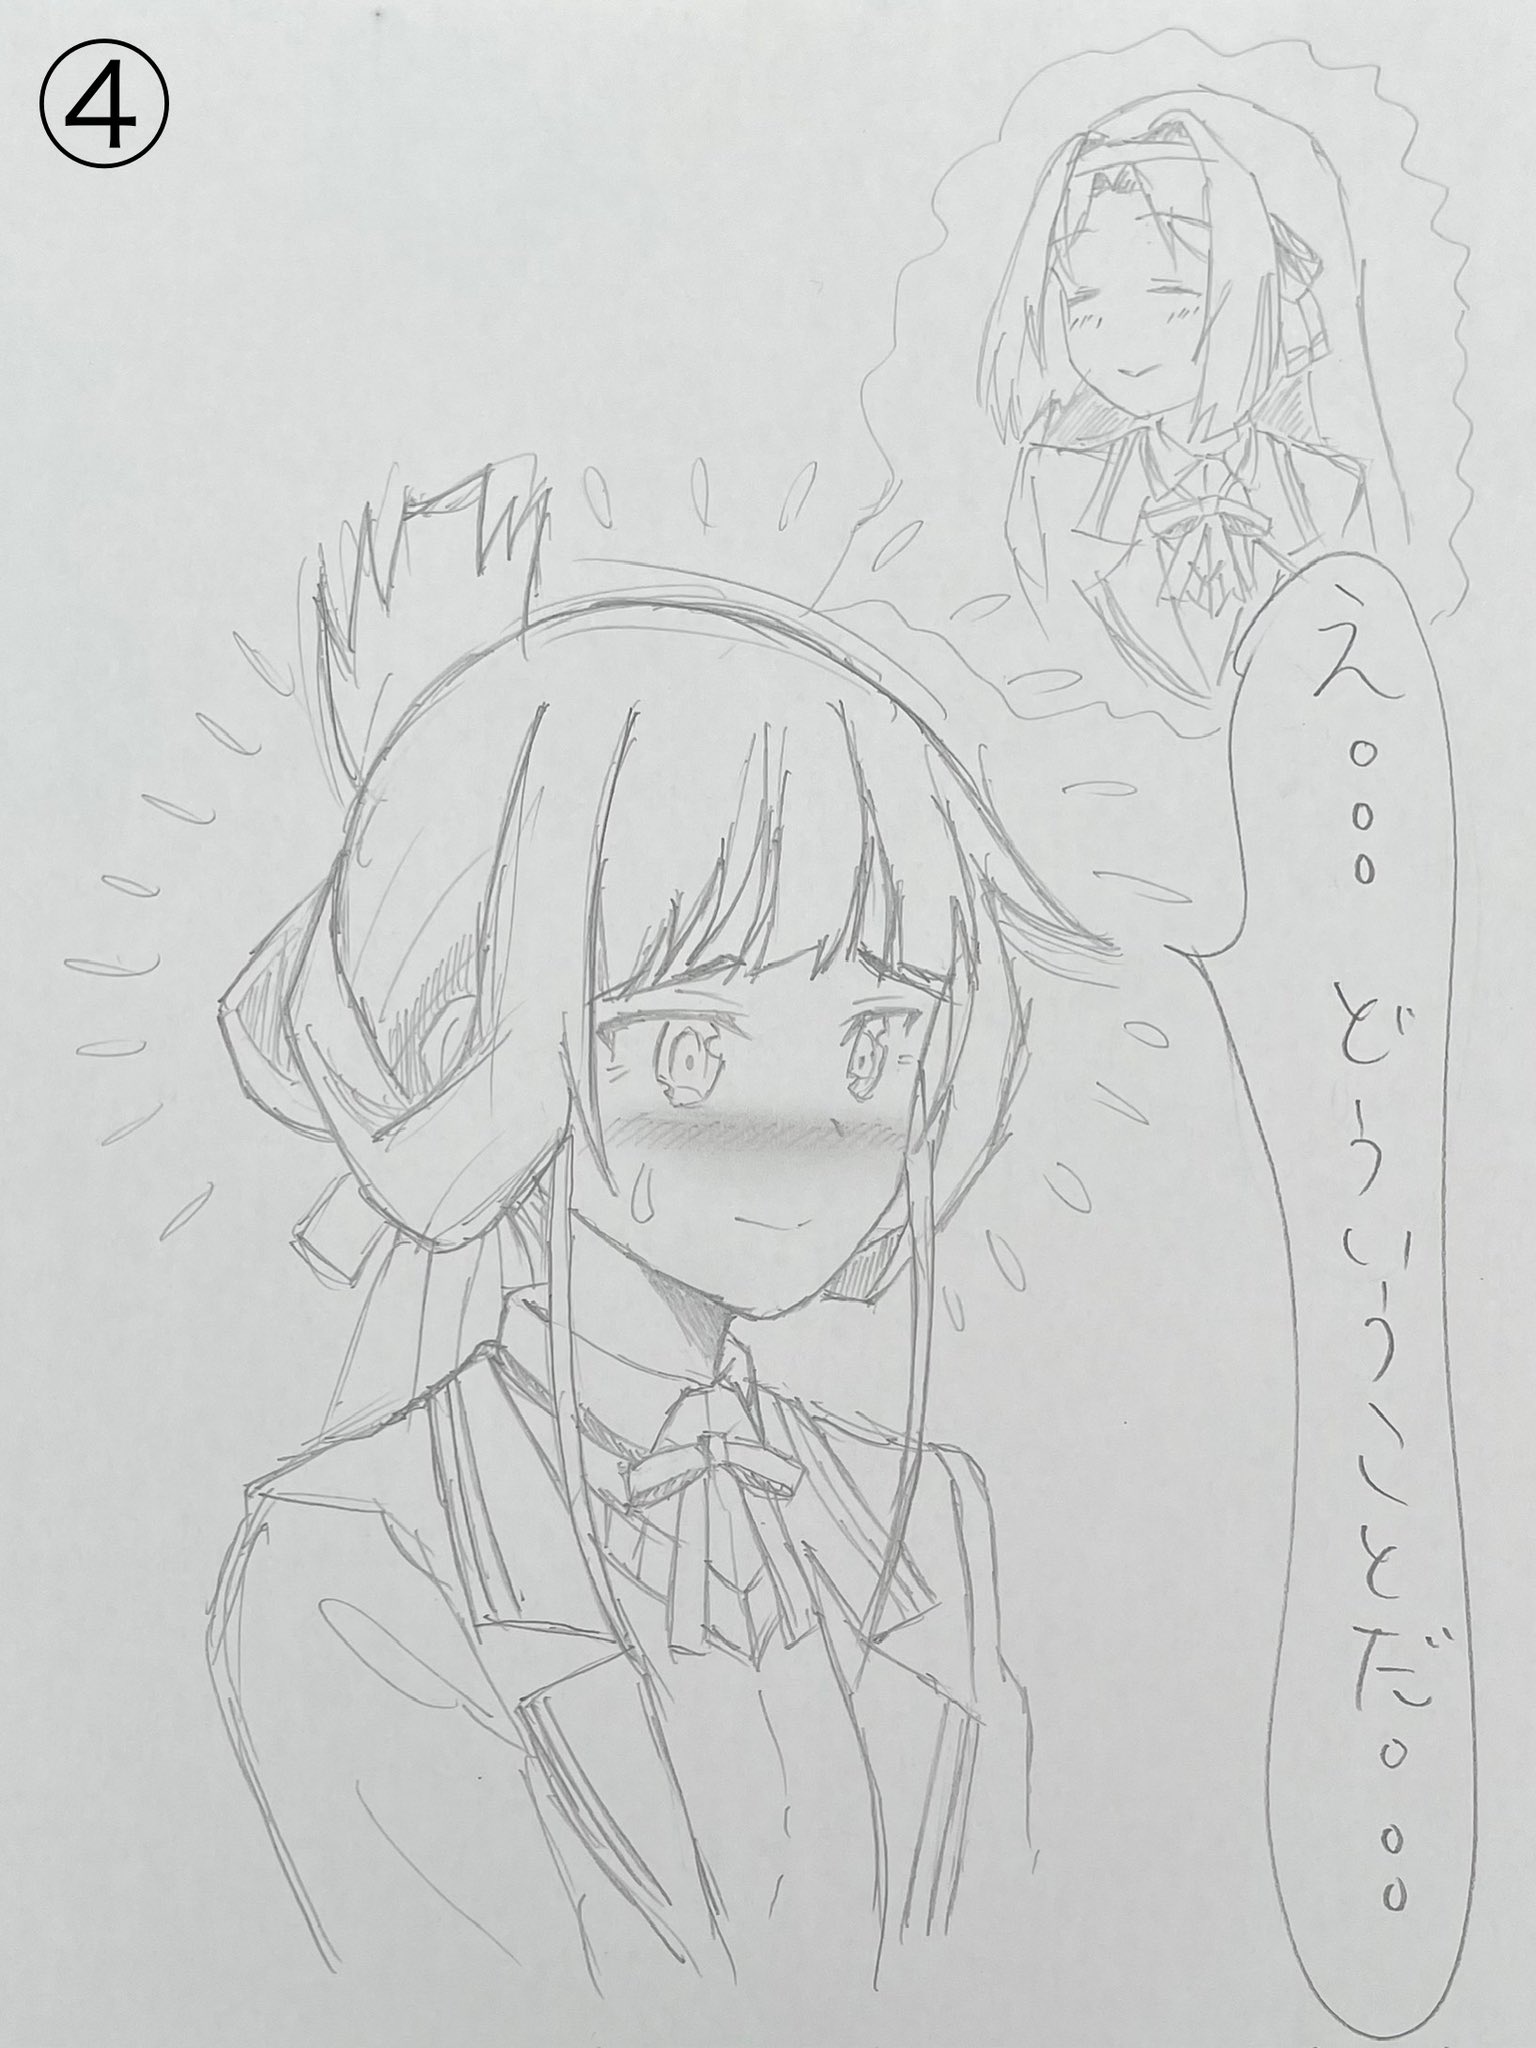 ④
え... どういうことだ...